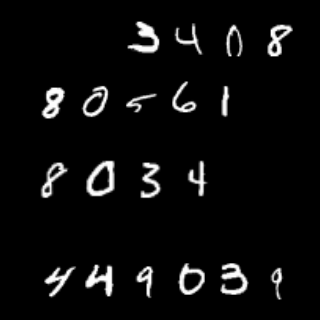 3 4 0 8
8 0 5 6 1
8 0 3 4
4 4 9 0 3 9